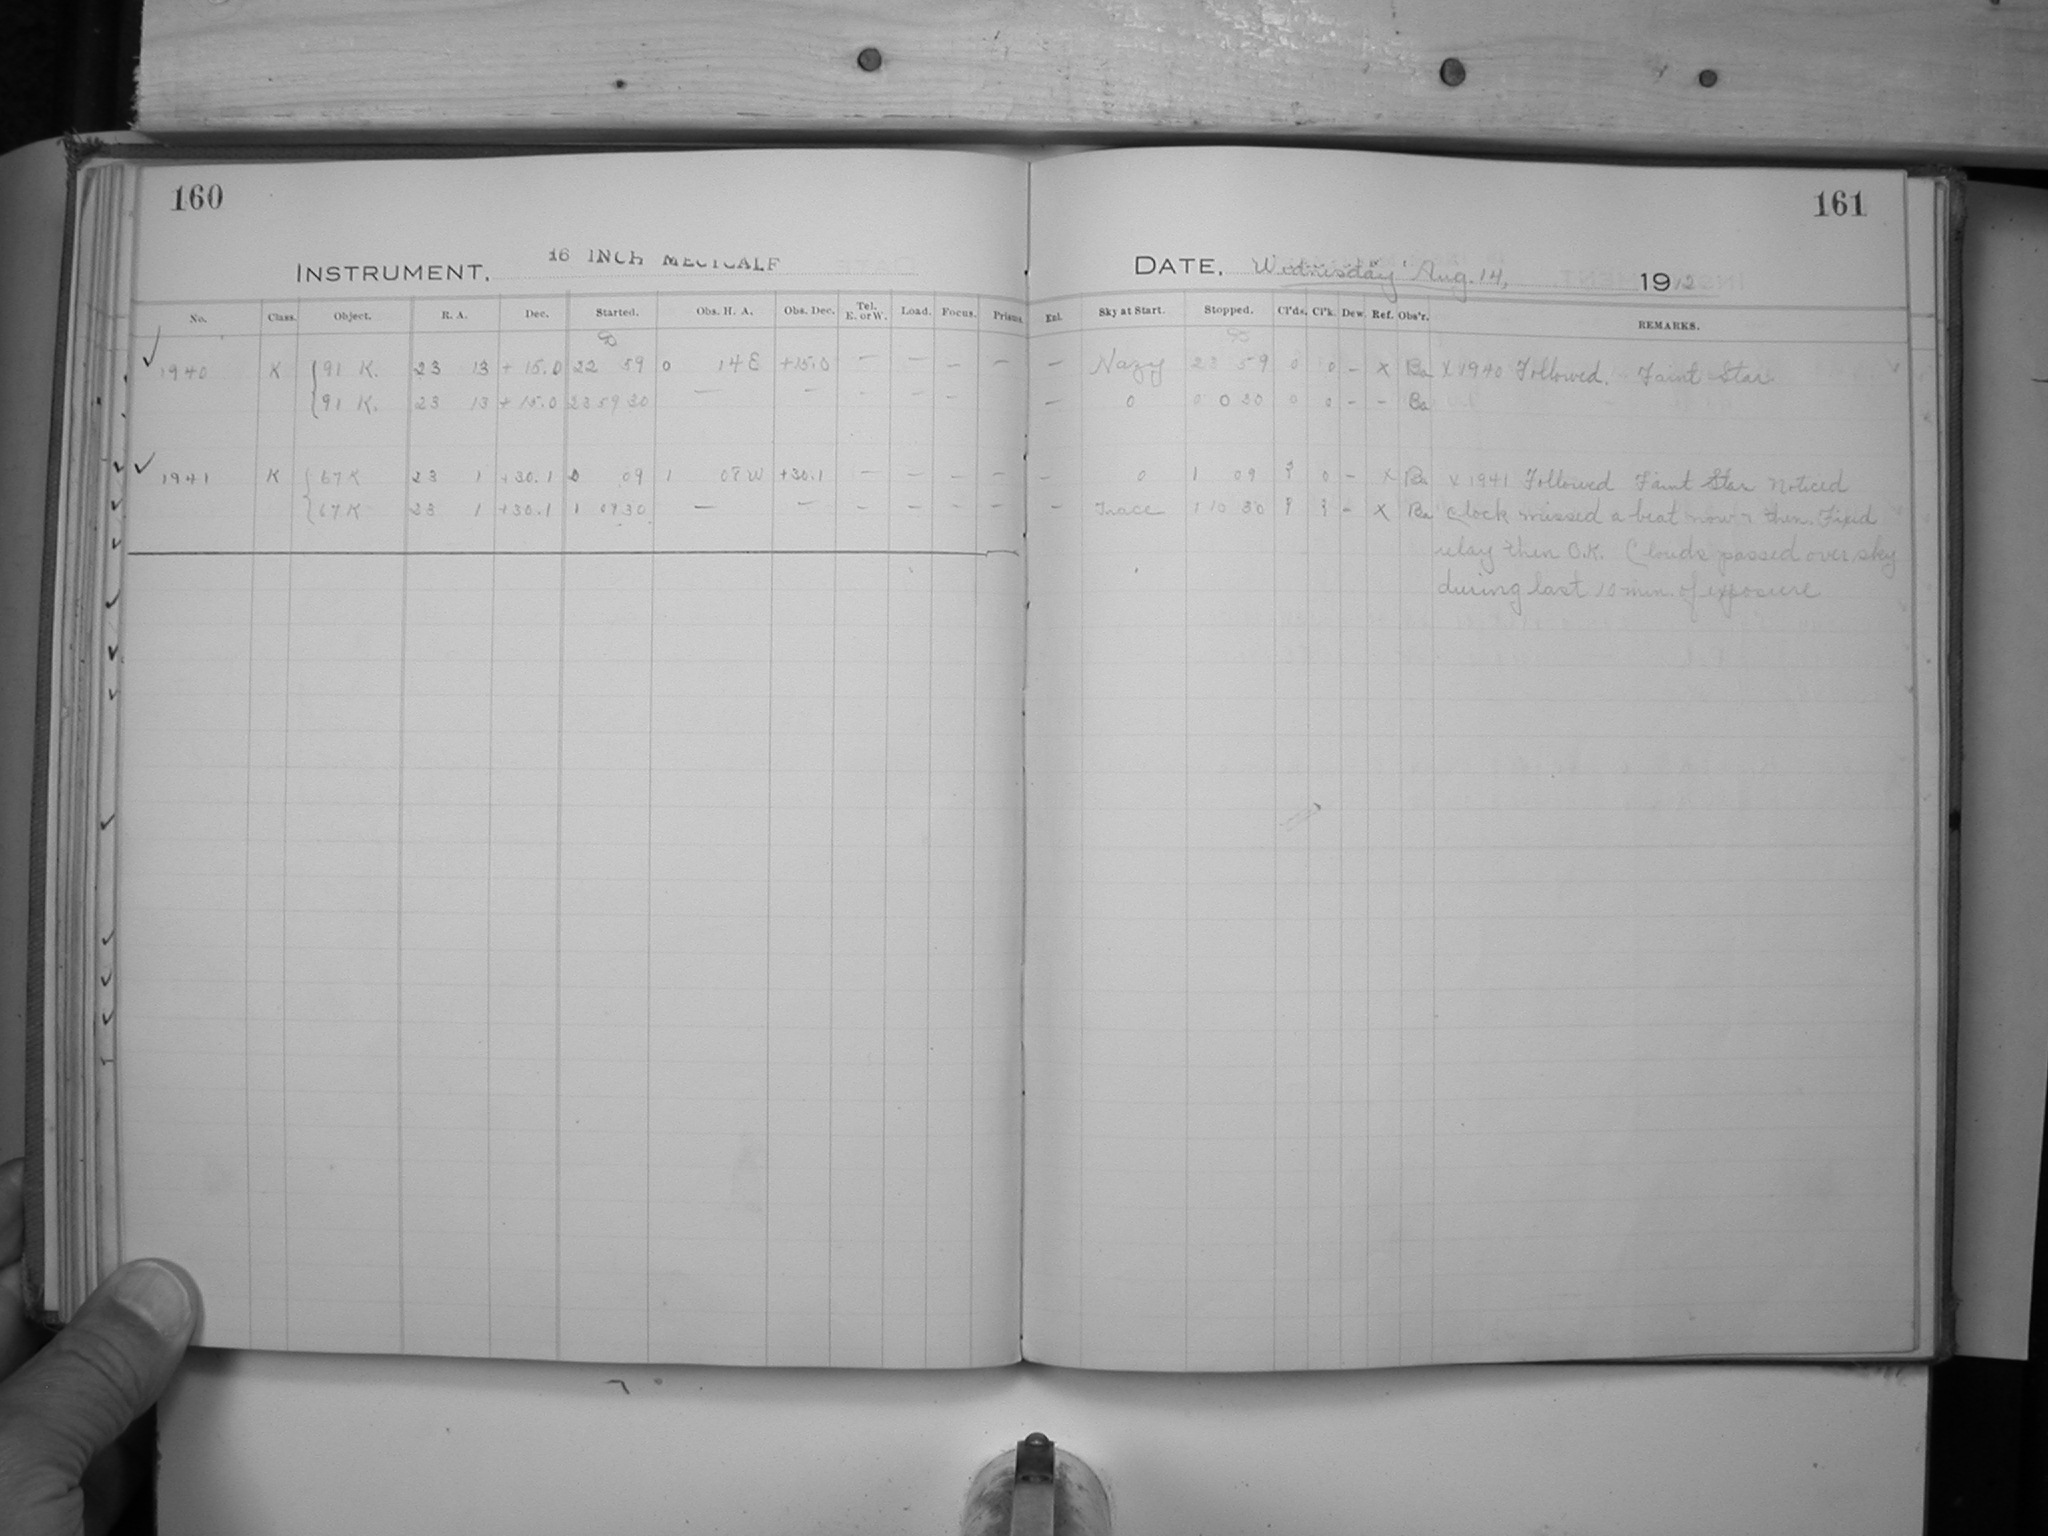 160
161
INSTRUMENT, 16 INCH METCALF
DATE, Wednesday Aug. 14, 1912
No. Class. Object. R. A. Dec. Started. Obs. H. A. Obs. Dec. Tel. E. or W. Load. Focus. Prisms. Enl. Sky at Start. Stopped. Cl'ds. Cl'k. Dew. Ref. Obs'r. REMARKS.
1940 K 91 K. 23 13 + 15.0 22 59 0 14 E +15.0 — — — — — Hazy 23 59 0 0 - X Ba X 1940 Followed. Faint Star
91 K. 23 13 + 15.0 23 59 30 — — - - - — 0 0 0 30 0 0 - - Ba
1941 K 67 K 23 1 +30.1 0 09 1 08 W +30.1 — — — — — 0 1 09 ? 0 - X Ba X 1941 Followed Faint Star Noticed
67 K 23 1 +30.1 1 09 30 — — - - - - — Trace 1 10 30 ? ? - X Ba Clock missed a beat now & then. Fixed
relay then O.K. Clouds passed over sky
during last 10 min. of exposure